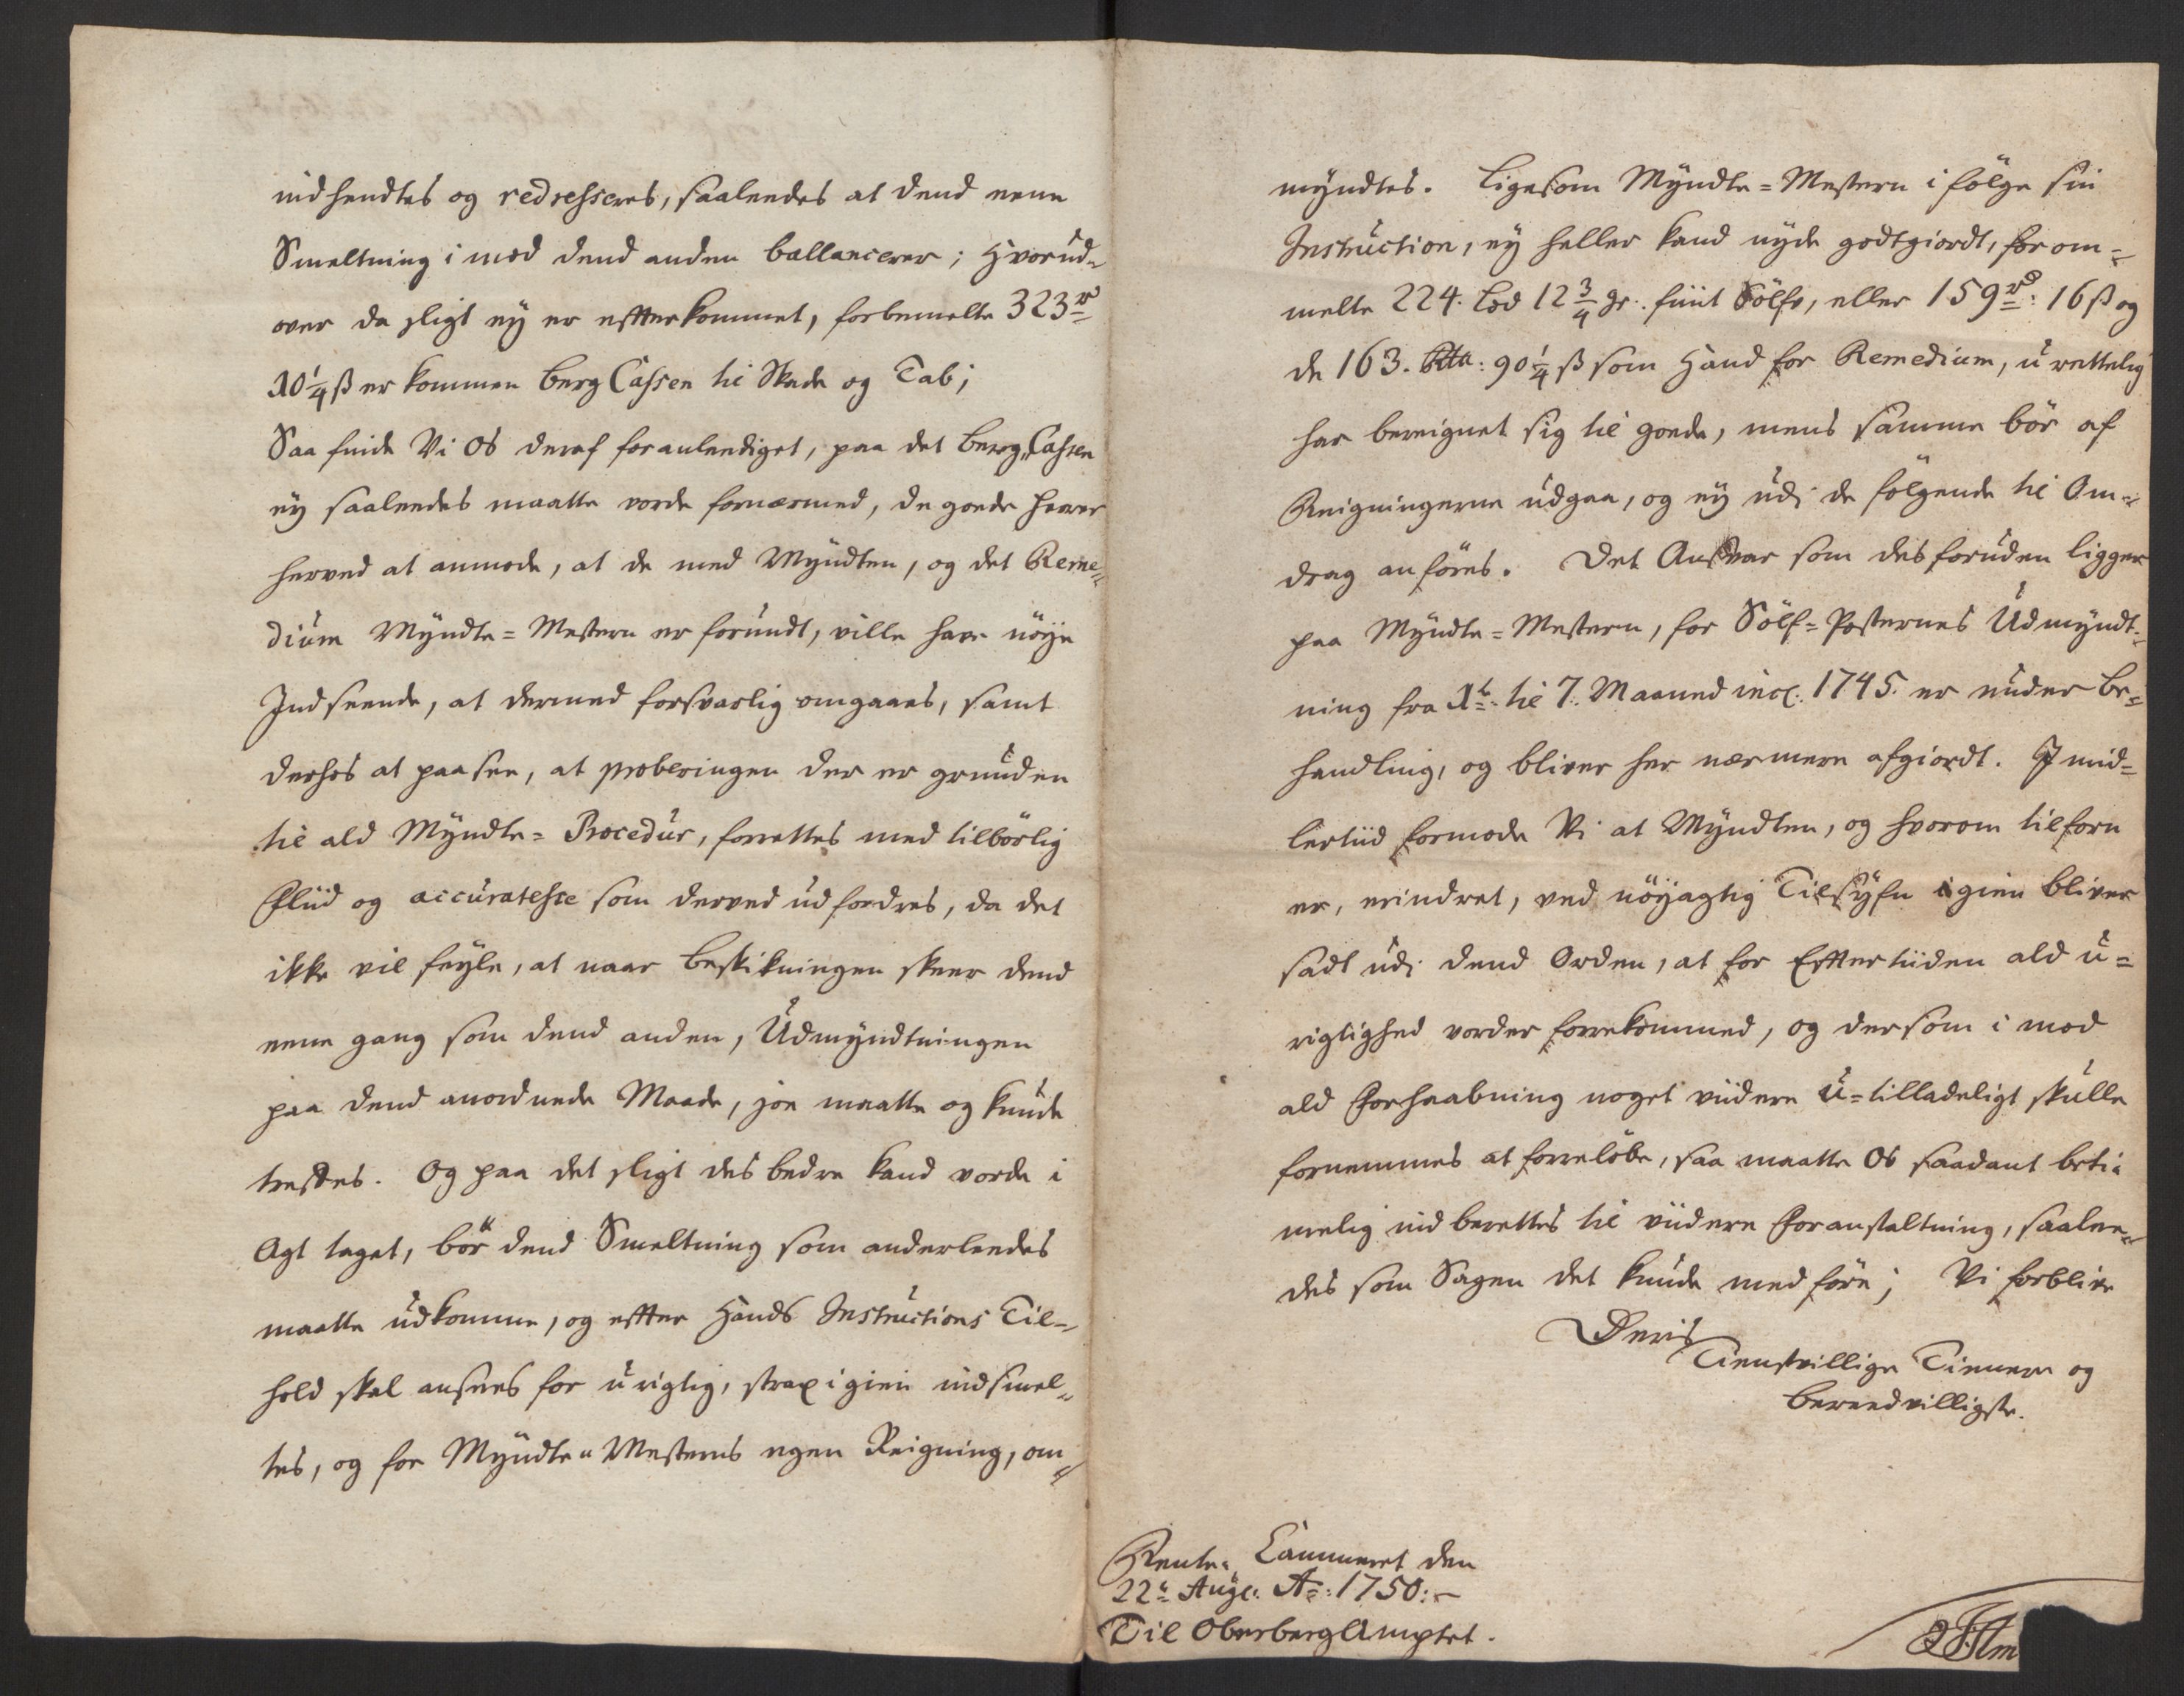 indhendtes og redresseres, saaleedes at dend eene
Smeltning i mod dend anden ballancerer; Hvorud=
over da sligt eÿ er effterkommet, forbemelte 323 rd
10 1/4 ß er kommen Berg Cassen til Skade og Tab;
Saa finde Vi Os deraf foranleediget, paa det Berg Cassen
eÿ saaleedes maatte vorde fornærmed, de goede Herrer
herved at anmode, at de med Mÿndten, og det Reme=
dium Mÿndte=Mestern er forundt, ville have nöÿe
Indseende, at dermed forsvarlig omgaaes, samt
derhos at paasee, at proberingen der er grunden
til ald Mÿndte=Procedur, forrettes med tilbörlig
Fliid og accuratesse som derved udfordres, da det
ikke vil feÿle, at naar Beskikningen skeer dend
eene gang som dend anden, Udmÿndtningen
paa dend anordnede Maade, joe maatte og kunde
treffes. Og paa det sligt des bedre kand vorde i
Agt taget, bör dend Smeltning som anderleedes
maatte udkomme, og effter Hands Instructions Til=
hold skal ansees for urigtig, strax igien indsmel=
tes, og for Mÿndte=Mesterns egen Reigning, om=
mÿndtes. Ligesom Mÿndte=Mestern i fölge sin
Instruction, eÿ heller kand nyde godtgiordt, for om=
melte 224. Lod 12 3/4 gr. fiint Sölfv, eller 159 rd: 16 ß og
de 163. Rdr: 90 1/4 ß som Hand for Remedium, urettelig
har bereignet sig til goede, mens samme bör af
Reigningerne udgaa, og eÿ udj de fölgende til Om=
drag anföres. Det Ansvar som desforuden ligger
paa Mÿndte=Mestern, for Sölf=Posternes Udmÿndt=
ning fra 1te til 7. Maaned incl. 1745. er under Be=
handling, og bliver her nærmere afgiordt. Imid=
lertiid formode Vi at Mÿndten, og hvorom tilforn
er, erindret, ved nöÿagtig Tilsÿfn igien bliver
sadt udj dend Orden, at for Efftertiiden ald u=
rigtighed vorder forrekommed, og dersom i mod
ald Forhaabning noget viidere u=tilladeligt skulle
fornemmes at forrelöbe, saa maatte Os saadant beti=
melig indberettes til viidere Foranstaltning, saalee=
des som Sagen det kunde medföre; Vi forblive
Deris
Tienstvillige Tienere og
bereedvilligste.
Rente=Cammeret den
22e Aug: Ao: 1750:
Til OberbergAmptet.